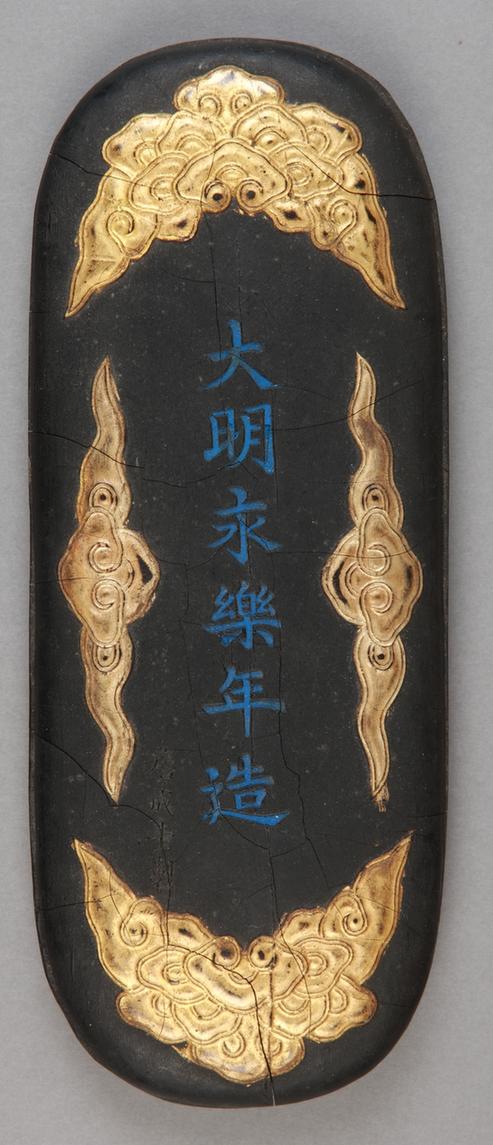 大明永樂年造